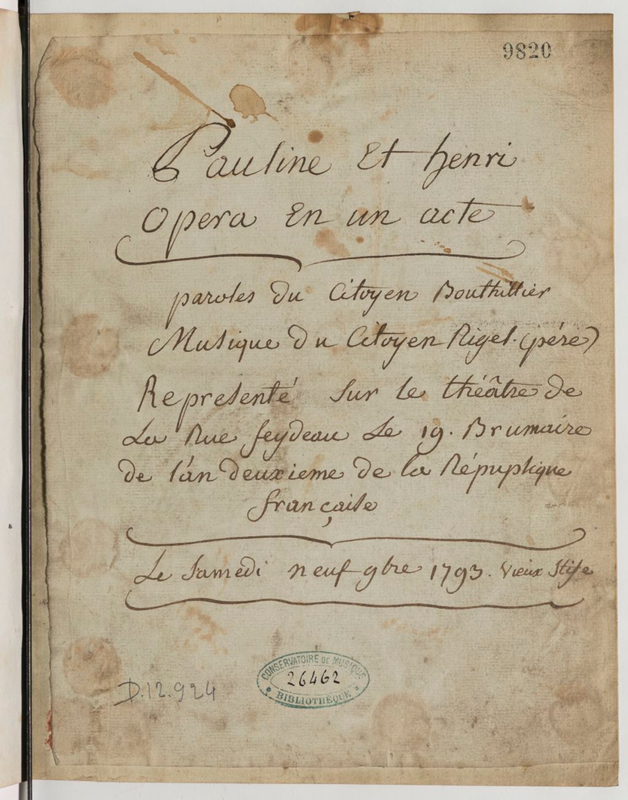 9820
Pauline Et henri
Opera En un acte
paroles du Citoyen Bouthillier
Musique du Citoyen Rigel. (pére)
Representé sur le théâtre de
La Rue feydeau Le 19. Brumaire
de l'an deuxieme de la Répuplique
française
Le Samedi neuf 9bre 1793. Vieux Stile
CONSERVATOIRE DE MUSIQUE
26462
BIBLIOTHÈQUE
D.12.924